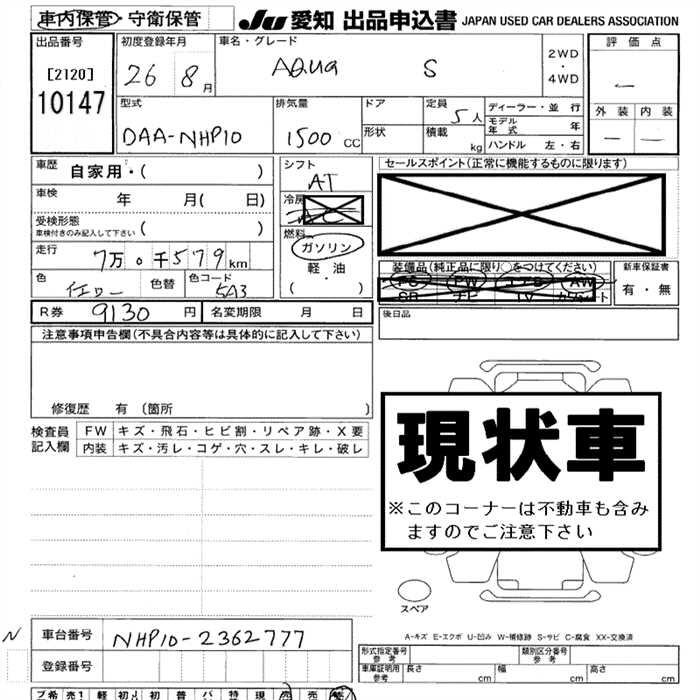 車内保管・守衛保管
JU 愛知 出品申込書 JAPAN USED CAR DEALERS ASSOCIATION
出品番号
[2120]
10147
初度登録年月
26 8月
車名・グレード
AQUA S
2WD
・
4WD
評価点
—
外装 内装
— —
型式
DAA-NHP10
排気量
1500 CC
ドア
形状
定員 5人
積載 kg
ディーラー・並 行
モデル年式 年
ハンドル 左・右
車歴 自家用・( )
車検 年 月( 日)
受検形態
車検付きのみ記入して下さい ( )
走行 7万0千579km
色 イエロー 色替 色コード 5A3
シフト
AT
冷房
AC
燃料
ガソリン
軽油
( )
セールスポイント(正常に機能するものに限ります)
装備品(純正品に限り○をつけてください)
PS PW エアB AW
SR ナビ TV カワシート
新車保証書
有・無
後日品
R券 9130円 名変期限 月 日
注意事項申告欄(不具合内容等は具体的に記入して下さい)
修復歴 有 〔箇所 〕
検査員
記入欄
FW キズ・飛石・ヒビ割・リペア跡・X要
内装 キズ・汚レ・コゲ・穴・スレ・キレ・破レ
現状車
※このコーナーは不動車も含み
ますのでご注意下さい
スペア
A-キズ E-エクボ U-凹み W-補修跡 S-サビ C-腐食 XX-交換済
N
車台番号 NHP10-2362777
登録番号
形式指定番号
参考
類別区分番号
参考
車庫証明用
参考
長さ cm 幅 cm 高さ cm
プ 希 売1 軽 初 初 普 バ 特 現 売 売